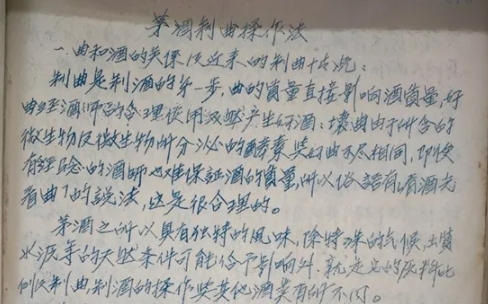 茅酒制曲操作法
一.曲和酒的关係及近来的制曲情况:
制曲是制酒的第一步,曲的質量直接影响酒質量,好
曲经酒师的合理使用就能产生好酒;壞曲由于所含的
微生物及微生物所分泌的酵素與好曲不尽相同,即使
有经验的酒師也难保証酒的質量,所以俗語有“看酒先
看曲”的說法,这是很合理的。
茅酒之所以具有独特的風味,除特殊的气候,土質
水源等的天然条件可能给予影响外,就是它的原料比
例及制曲制酒的操作與其他酒类有所不同。